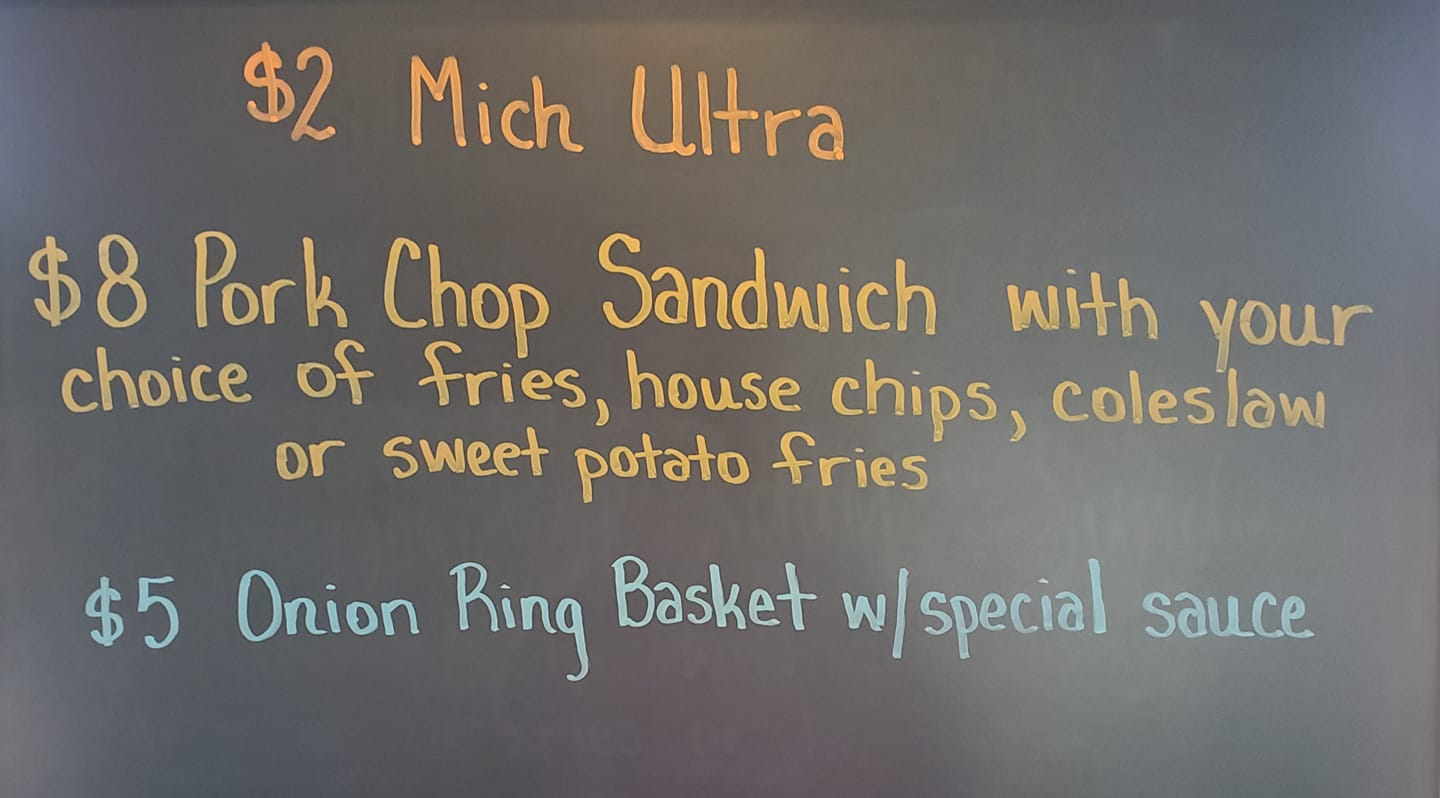 $2 Mich Ultra
$8 Pork Chop Sandwich with your
choice of fries, house chips, coleslaw
or sweet potato fries
$5 Onion Ring Basket w/special sauce